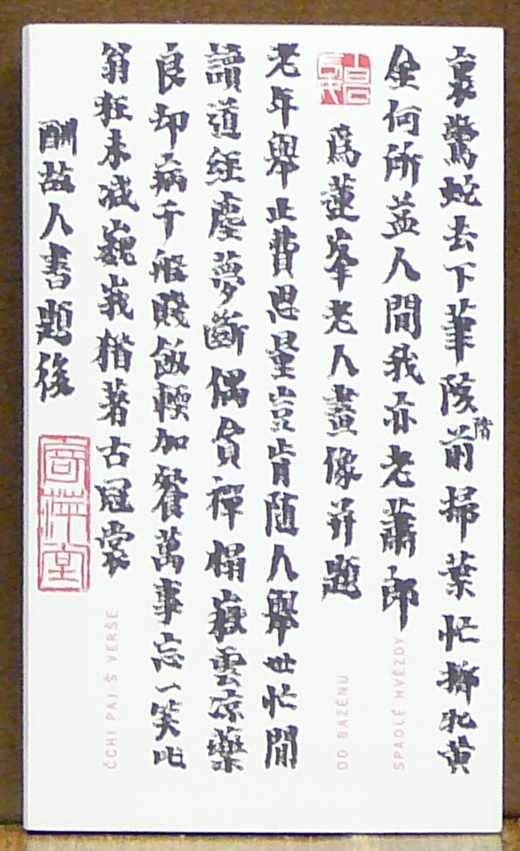 裏驚蛇去下筆陔前掃葉忙擲牝黃
階
金何所益人間我亦老蕭郎
爲蓮峯老人畫像并題
老年舉止費思量豈肯隨人舉世忙閒
讀道經塵夢斷偶貪禪榻嶽雲涼藥
良却病千般賤飯輭加餐萬事忘一笑此
翁狂未减巍峩猶著古冠裳
酬故人書題後
寄萍堂
SPADLÉ HVĚZDY
OD BAZÉNU
ČCHI PAJ Š VERŠE